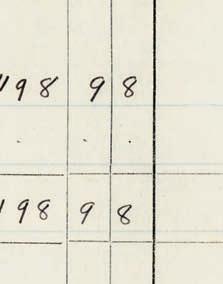 198 98
198 98